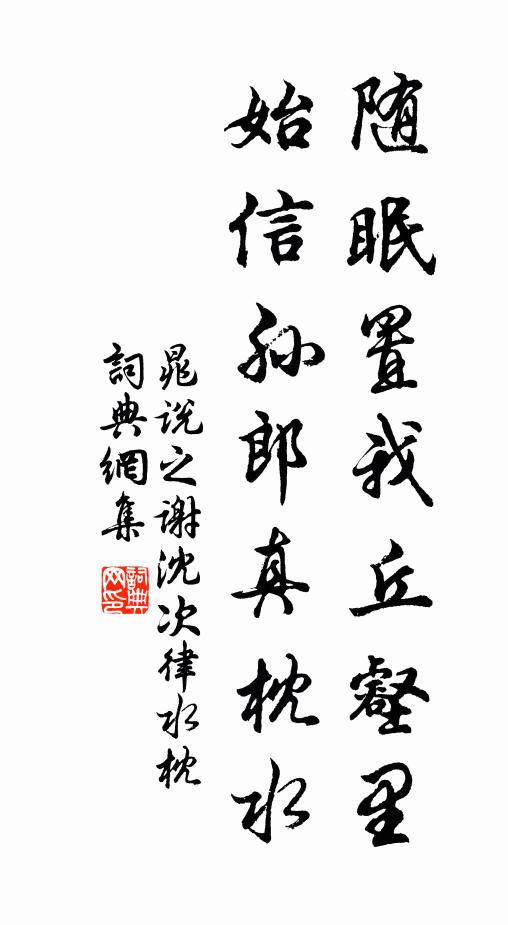 随眠置我丘壑里
始信孙郎真枕水
晁说之谢沈次律水枕
詞典網集
詞典网印